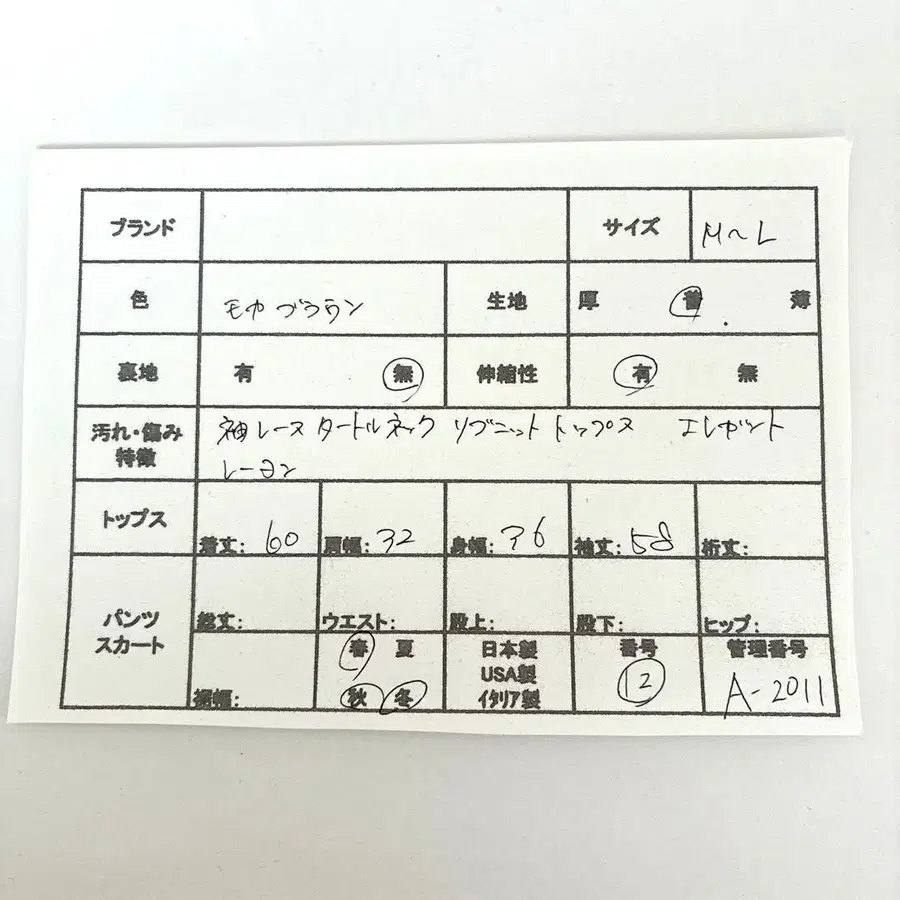 ブランド サイズ M~L
色 モカブラウン 生地 厚 普 薄
裏地 有 無 伸縮性 有 無
汚れ・傷み 袖レース タートルネック リブニット トップス エレガント
特徴 レーヨン
トップス 着丈: 60 肩幅: 32 身幅: 36 袖丈: 58 裄丈:
パンツ
スカート
総丈: ウエスト: 股上: 股下: ヒップ:
裾幅:
春 夏
秋 冬
日本製
USA製
イタリア製
番号
12
管理番号
A-2011